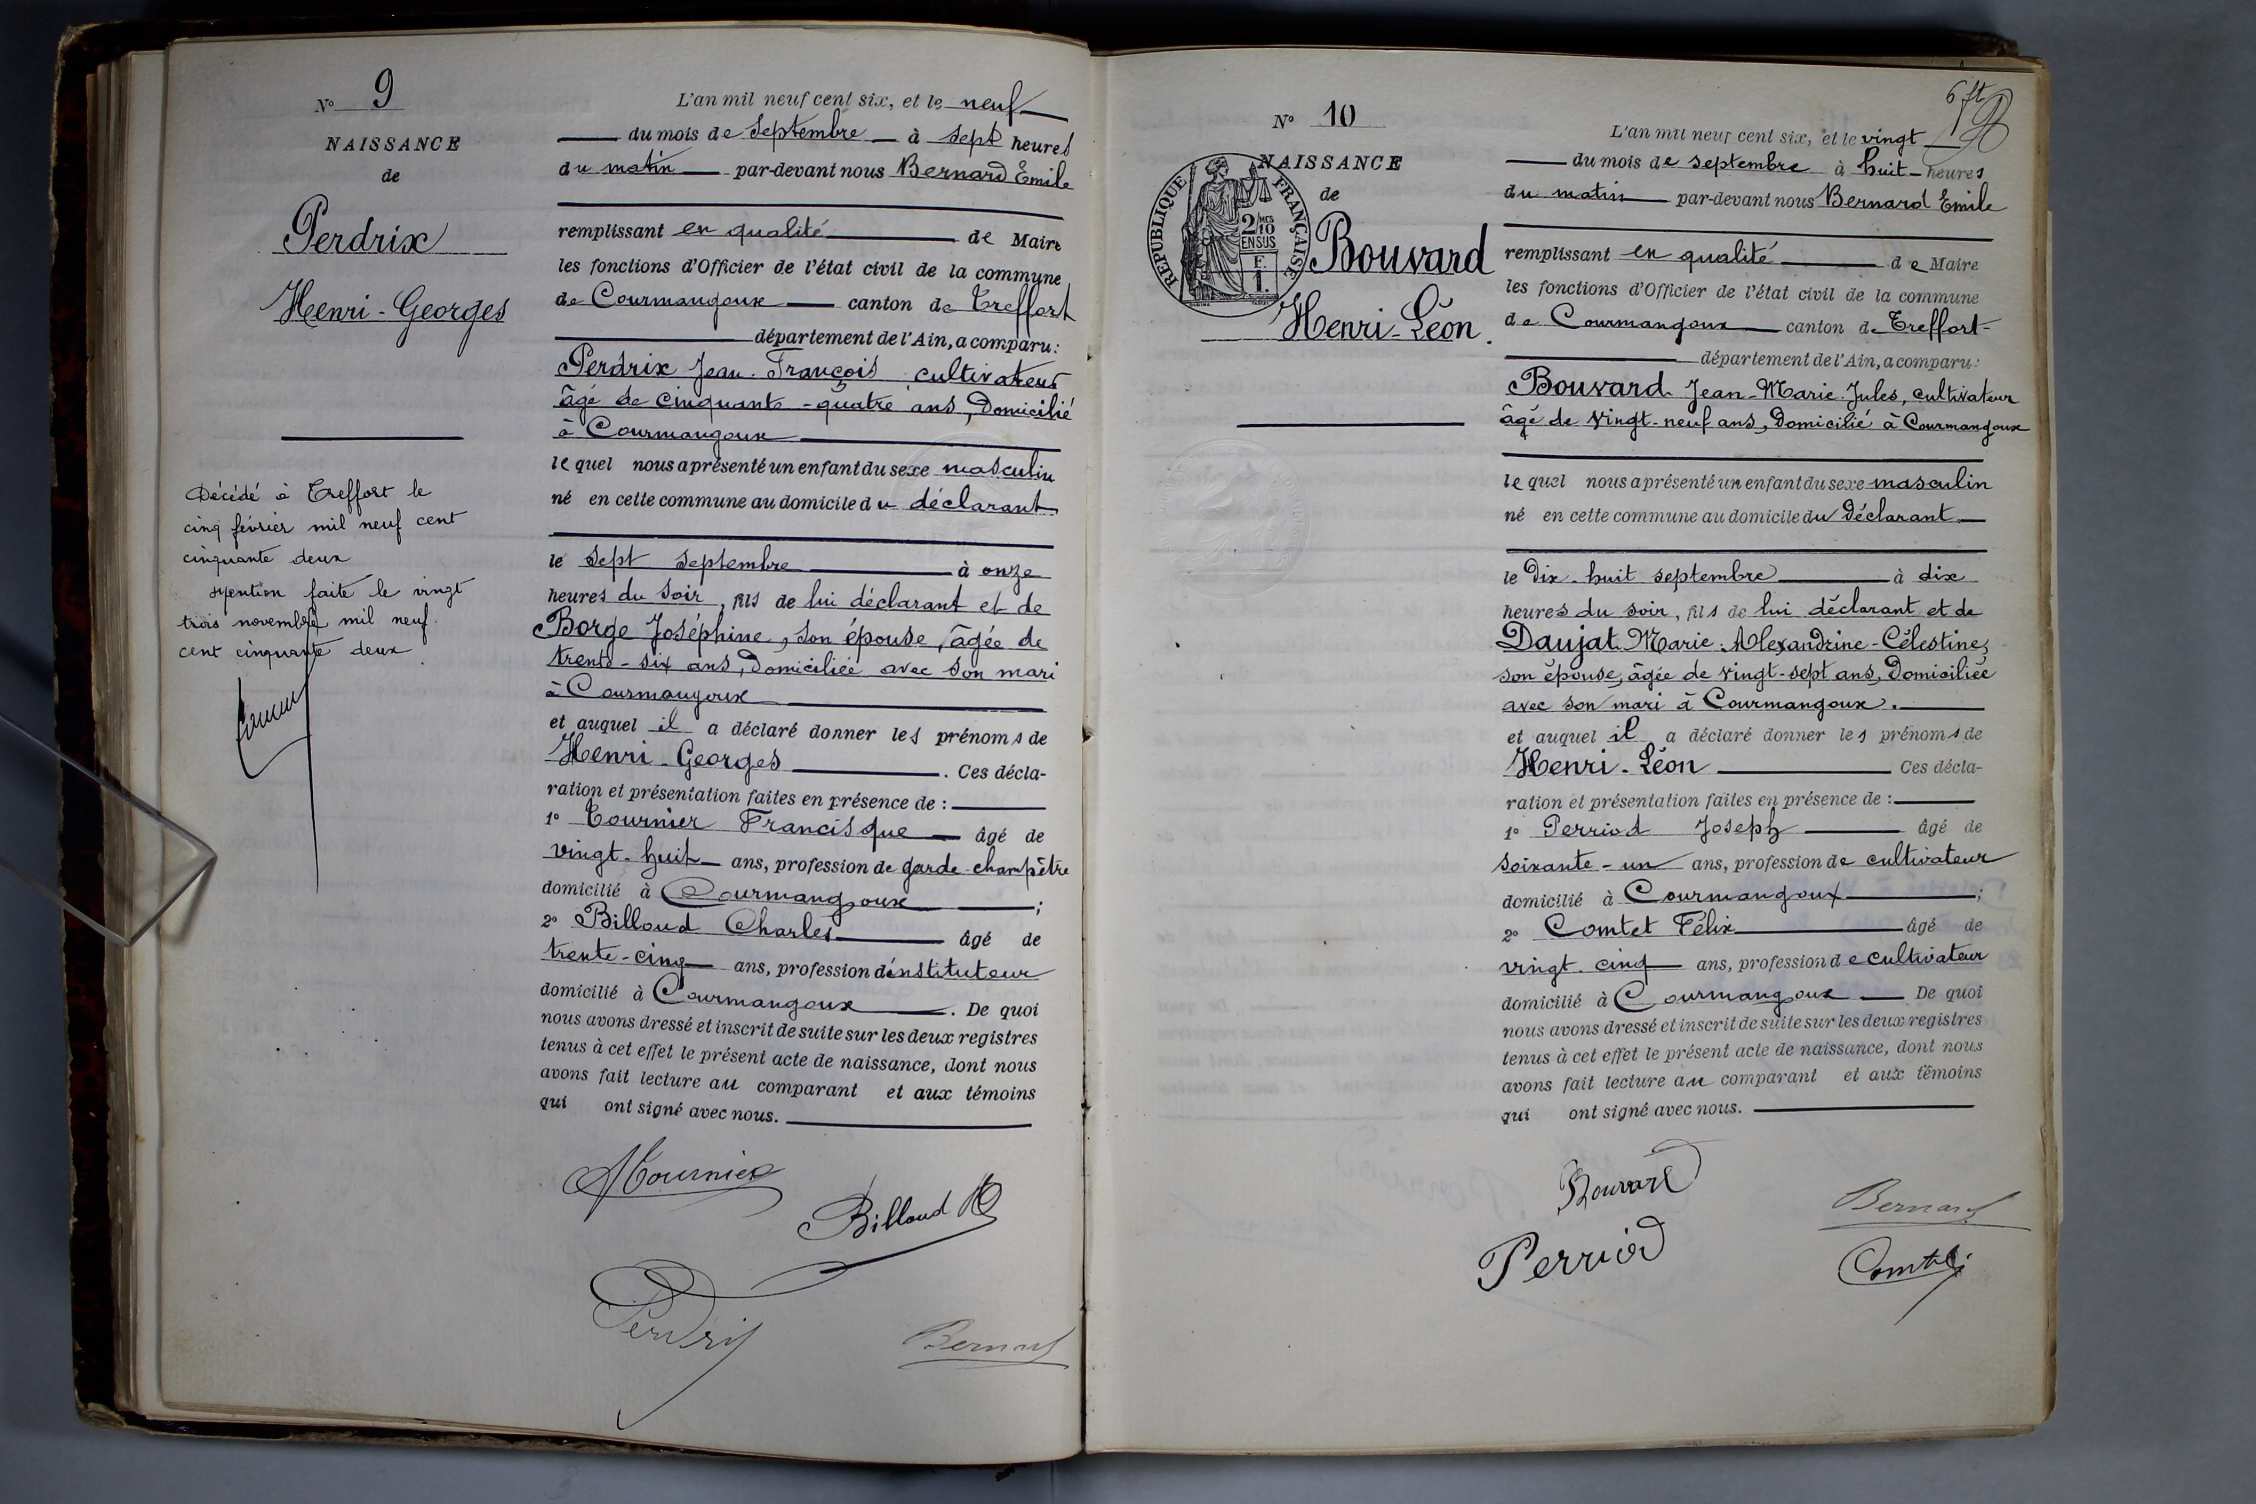 N° 9
NAISSANCE
de
Perdrix
Henri-Georges
Décédé à Treffort le
cinq février mil neuf cent
cinquante deux
mention faite le vingt
trois novembre mil neuf
cent cinquante deux
L'an mil neuf cent six, et le neuf
du mois de septembre à sept heures
du matin par-devant nous Bernard Emile
remplissant en qualité de Maire
les fonctions d'Officier de l'état civil de la commune
de Courmangoux canton de Treffort
département de l'Ain, a comparu:
Perdrix Jean-François cultivateur
âgé de cinquante-quatre ans, Domicilié
à Courmangoux
lequel nous a présenté un enfant du sexe masculin
né en cette commune au domicile du déclarant
le sept septembre à onze
heures du soir, fils de lui déclarant et de
Borge Joséphine, son épouse, âgée de
trente-six ans, Domiciliée avec son mari
à Courmangoux
et auquel il a déclaré donner les prénoms de
Henri-Georges. Ces décla-
ration et présentation faites en présence de :
1° Tournier Francisque âgé de
vingt-huit ans, profession de garde-champêtre
domicilié à Courmangoux ;
2° Billoud Charles âgé de
trente-cinq ans, profession d'instituteur
domicilié à Courmangoux. De quoi
nous avons dressé et inscrit de suite sur les deux registres
tenus à cet effet le présent acte de naissance, dont nous
avons fait lecture au comparant et aux témoins
qui ont signé avec nous.
Tournier
Billoud
Perdrix
Bernard
6
N° 10
NAISSANCE
de
REPUBLIQUE FRANÇAISE
2/10
EN SUS
F.
1.
Bouvard
Henri-Léon.
L'an mil neuf cent six, et le vingt
du mois de septembre à huit heures
du matin par-devant nous Bernard Emile
remplissant en qualité de Maire
les fonctions d'Officier de l'état civil de la commune
de Courmangoux canton de Treffort
département de l'Ain, a comparu:
Bouvard Jean-Marie-Jules, cultivateur
âgé de vingt-neuf ans, Domicilié à Courmangoux
lequel nous a présenté un enfant du sexe masculin
né en cette commune au domicile du Déclarant
le Dix-huit septembre à dix
heures du soir, fils de lui déclarant et de
Daujat Marie-Alexandrine-Célestine,
son épouse, âgée de vingt-sept ans, Domiciliée
avec son mari à Courmangoux.
et auquel il a déclaré donner les prénoms de
Henri-Léon Ces décla-
ration et présentation faites en présence de :
1° Perriod Joseph âgé de
soixante-un ans, profession de cultivateur
domicilié à Courmangoux ;
2° Comtet Félix âgé de
vingt-cinq ans, profession de cultivateur
domicilié à Courmangoux De quoi
nous avons dressé et inscrit de suite sur les deux registres
tenus à cet effet le présent acte de naissance, dont nous
avons fait lecture au comparant et aux témoins
qui ont signé avec nous.
Bouvard
Bernard
Perriod
Comtet